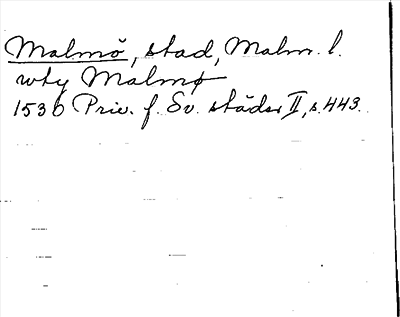 Malmö, stad, Malm. l.
wty Malmø
1530 Priv. f. Sv. städer II, s. 443.